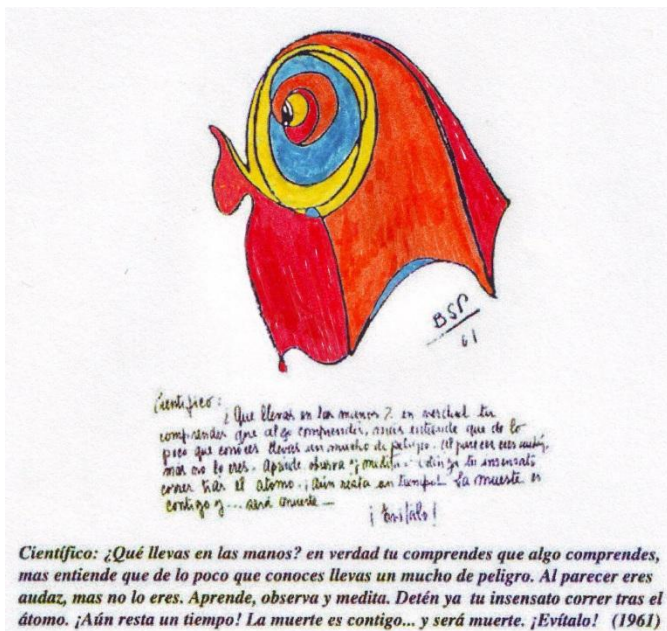 BSP
61
Científico:
¿Que llevas en las manos? en verdad tu
comprendes que algo comprendes, mas entiende que de lo
poco que conoces llevas un mucho de peligro. Al parecer eres audaz,
mas no lo eres. Aprende observa y medita.
correr tras el atomo. ¡Aún resta un tiempo! La muerte es
contigo y... será muerte —
¡Evitalo!
Científico: ¿Qué llevas en las manos? en verdad tu comprendes que algo comprendes,
mas entiende que de lo poco que conoces llevas un mucho de peligro. Al parecer eres
audaz, mas no lo eres. Aprende, observa y medita. Detén ya tu insensato correr tras el
átomo. ¡Aún resta un tiempo! La muerte es contigo... y será muerte. ¡Evítalo! (1961)